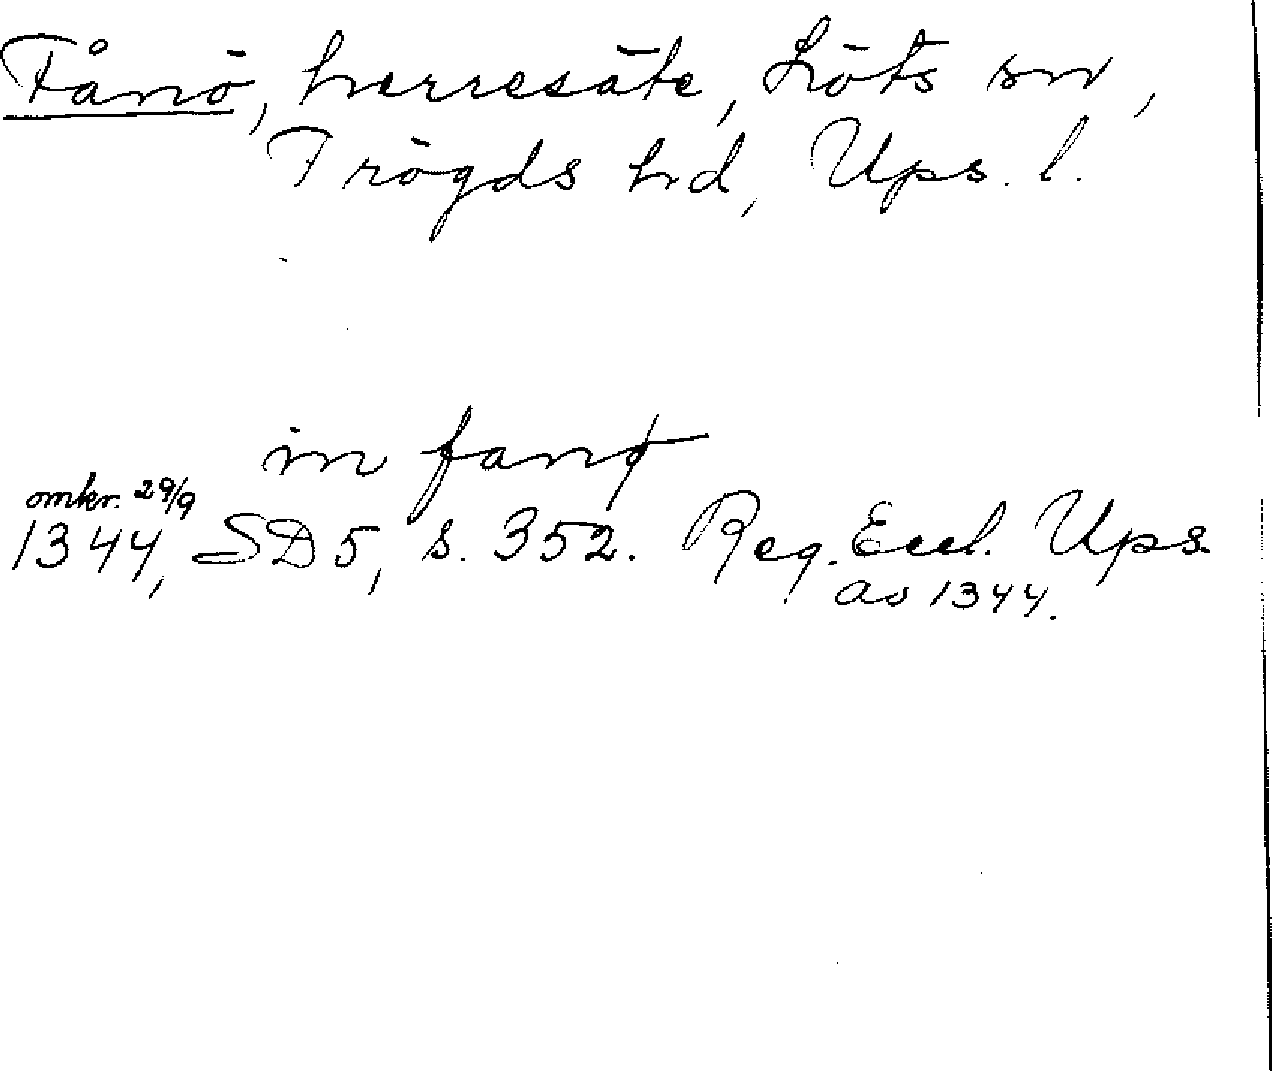 Fånö, herresäte, Löts sn,
Trögds hd, Ups. l.
in fanø
omkr. 29/9
1344, SD 5, s. 352. Reg. Eccl. Ups.
av 1344.